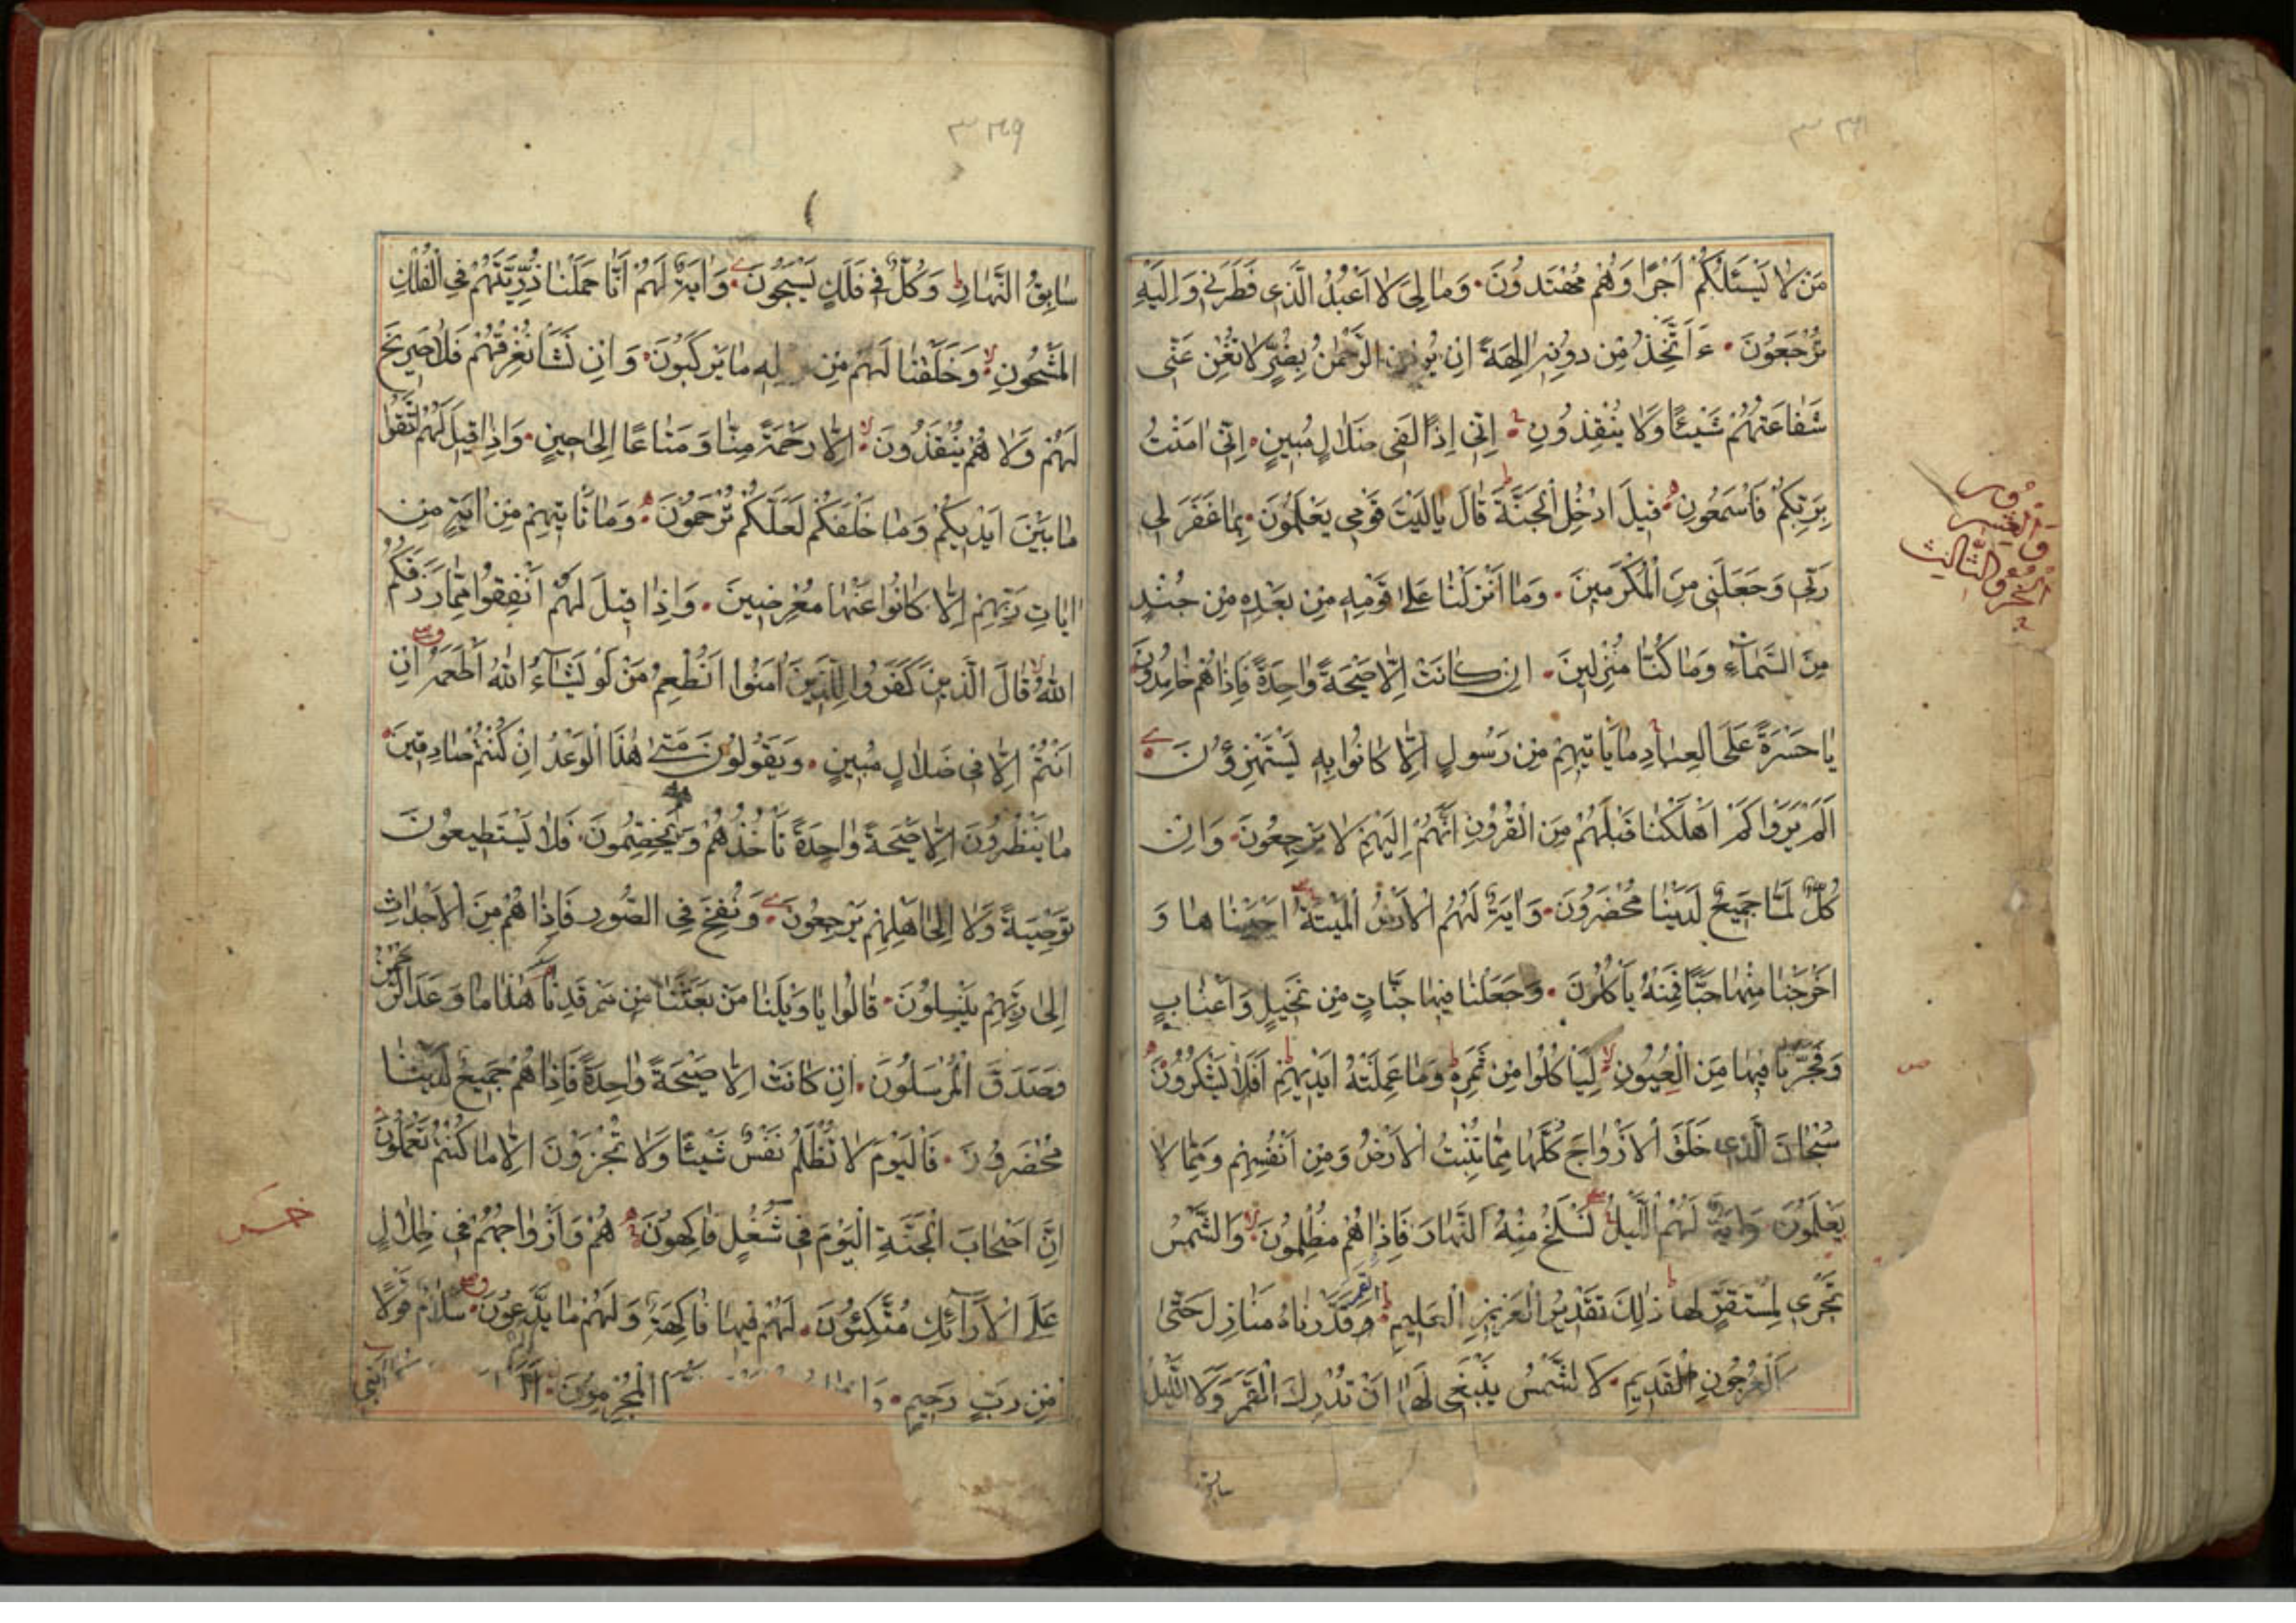 مَنْ لَا يَسْئَلُكُمْ اَجْرًا وَهُمْ مُهْتَدُونَ وَمَا لِيَ لَا اَعْبُدُ الَّذِى فَطَرَنِى وَاِلَيْهِ
تُرْجَعُونَ ءَاَتَّخِذُ مِنْ دُونِهِ اٰلِهَةً اِنْ الرَّحْمٰنُ بِضُرٍّ لَا تُغْنِ عَنِّى
شَفَاعَتُهُمْ شَيْئًا وَلَا يُنْقِذُونِ اِنِّى اِذًا لَفِى ضَلَالٍ مُبِينٍ اِنِّى اٰمَنْتُ
بِرَبِّكُمْ فَاسْمَعُونِ قِيلَ ادْخُلِ الْجَنَّةَ قَالَ يَا لَيْتَ قَوْمِى يَعْلَمُونَ بِمَا غَفَرَ لِى
رَبِّى وَجَعَلَنِى مِنَ الْمُكْرَمِينَ وَمَا اَنْزَلْنَا عَلٰى قَوْمِهِ مِنْ بَعْدِهِ مِنْ جُنْدٍ
مِنَ السَّمَاءِ وَمَا كُنَّا مُنْزِلِينَ اِنْ كَانَتْ اِلَّا صَيْحَةً وَاحِدَةً فَاِذَا هُمْ خَامِدُونَ
يَا حَسْرَةً عَلَى الْعِبَادِ مَا يَاْتِيهِمْ مِنْ رَسُولٍ اِلَّا كَانُوا بِهِ يَسْتَهْزِؤُنَ
اَلَمْ يَرَوْا كَمْ اَهْلَكْنَا قَبْلَهُمْ مِنَ الْقُرُونِ اَنَّهُمْ اِلَيْهِمْ لَا يَرْجِعُونَ وَاِنْ
كُلٌّ لَمَّا جَمِيعٌ لَدَيْنَا مُحْضَرُونَ وَاٰيَةٌ لَهُمُ الْاَرْضُ الْمَيْتَةُ اَحْيَيْنَاهَا وَ
اَخْرَجْنَا مِنْهَا حَبًّا فَمِنْهُ يَاْكُلُونَ وَجَعَلْنَا فِيهَا جَنَّاتٍ مِنْ نَخِيلٍ وَاَعْنَابٍ
وَفَجَّرْنَا فِيهَا مِنَ الْعُيُونِ لِيَاْكُلُوا مِنْ ثَمَرِهِ وَمَا عَمِلَتْهُ اَيْدِيهِمْ اَفَلَا يَشْكُرُونَ
سُبْحَانَ الَّذِى خَلَقَ الْاَزْوَاجَ كُلَّهَا مِمَّا تُنْبِتُ الْاَرْضُ وَمِنْ اَنْفُسِهِمْ وَمِمَّا لَا
يَعْلَمُونَ وَاٰيَةٌ لَهُمُ الَّيْلُ نَسْلَخُ مِنْهُ النَّهَارَ فَاِذَا هُمْ مُظْلِمُونَ وَالشَّمْسُ
تَجْرِى لِمُسْتَقَرٍّ لَهَا ذٰلِكَ تَقْدِيرُ الْعَزِيزِ الْعَلِيمِ وَالْقَمَرَ قَدَّرْنَاهُ مَنَازِلَ حَتّٰى
كَالْعُرْجُونِ الْقَدِيمِ لَا الشَّمْسُ يَنْبَغِى لَهَا اَنْ تُدْرِكَ الْقَمَرَ وَلَا الَّيْلُ
سابق
سَابِقُ النَّهَارِ وَكُلٌّ فِى فَلَكٍ يَسْبَحُونَ وَاٰيَةٌ لَهُمْ اَنَّا حَمَلْنَا ذُرِّيَّتَهُمْ فِى الْفُلْكِ
الْمَشْحُونِ وَخَلَقْنَا لَهُمْ مِنْ مَا يَرْكَبُونَ وَاِنْ نَشَاْ نُغْرِقْهُمْ فَلَا صَرِيخَ
لَهُمْ وَلَا هُمْ يُنْقَذُونَ اِلَّا رَحْمَةً مِنَّا وَمَتَاعًا اِلٰى حِينٍ وَاِذَا قِيلَ لَهُمُ اتَّقُوا
مَا بَيْنَ اَيْدِيكُمْ وَمَا خَلْفَكُمْ لَعَلَّكُمْ تُرْحَمُونَ وَمَا تَاْتِيهِمْ مِنْ اٰيَةٍ مِنْ
اٰيَاتِ رَبِّهِمْ اِلَّا كَانُوا عَنْهَا مُعْرِضِينَ وَاِذَا قِيلَ لَهُمْ اَنْفِقُوا مِمَّا رَزَقَكُمُ
اللّٰهُ قَالَ الَّذِينَ كَفَرُوا لِلَّذِينَ اٰمَنُوا اَنُطْعِمُ مَنْ لَوْ يَشَاءُ اللّٰهُ اَطْعَمَهُ اِنْ
اَنْتُمْ اِلَّا فِى ضَلَالٍ مُبِينٍ وَيَقُولُونَ مَتٰى هٰذَا الْوَعْدُ اِنْ كُنْتُمْ صَادِقِينَ
مَا يَنْظُرُونَ اِلَّا صَيْحَةً وَاحِدَةً تَاْخُذُهُمْ وَهُمْ يَخِصِّمُونَ فَلَا يَسْتَطِيعُونَ
تَوْصِيَةً وَلَا اِلٰى اَهْلِهِمْ يَرْجِعُونَ وَنُفِخَ فِى الصُّورِ فَاِذَا هُمْ مِنَ الْاَجْدَاثِ
اِلٰى رَبِّهِمْ يَنْسِلُونَ قَالُوا يَا وَيْلَنَا مَنْ بَعَثَنَا مِنْ مَرْقَدِنَا هٰذَا مَا وَعَدَ الرَّحْمٰنُ
وَصَدَقَ الْمُرْسَلُونَ اِنْ كَانَتْ اِلَّا صَيْحَةً وَاحِدَةً فَاِذَا هُمْ جَمِيعٌ لَدَيْنَا
مُحْضَرُونَ فَالْيَوْمَ لَا تُظْلَمُ نَفْسٌ شَيْئًا وَلَا تُجْزَوْنَ اِلَّا مَا كُنْتُمْ تَعْمَلُونَ
اِنَّ اَصْحَابَ الْجَنَّةِ الْيَوْمَ فِى شُغُلٍ فَاكِهُونَ هُمْ وَاَزْوَاجُهُمْ فِى ظِلَالٍ
عَلَى الْاَرَائِكِ مُتَّكِئُونَ لَهُمْ فِيهَا فَاكِهَةٌ وَلَهُمْ مَا يَدَّعُونَ سَلَامٌ قَوْلًا
مِنْ رَبٍّ رَحِيمٍ الْمُجْرِمُونَ